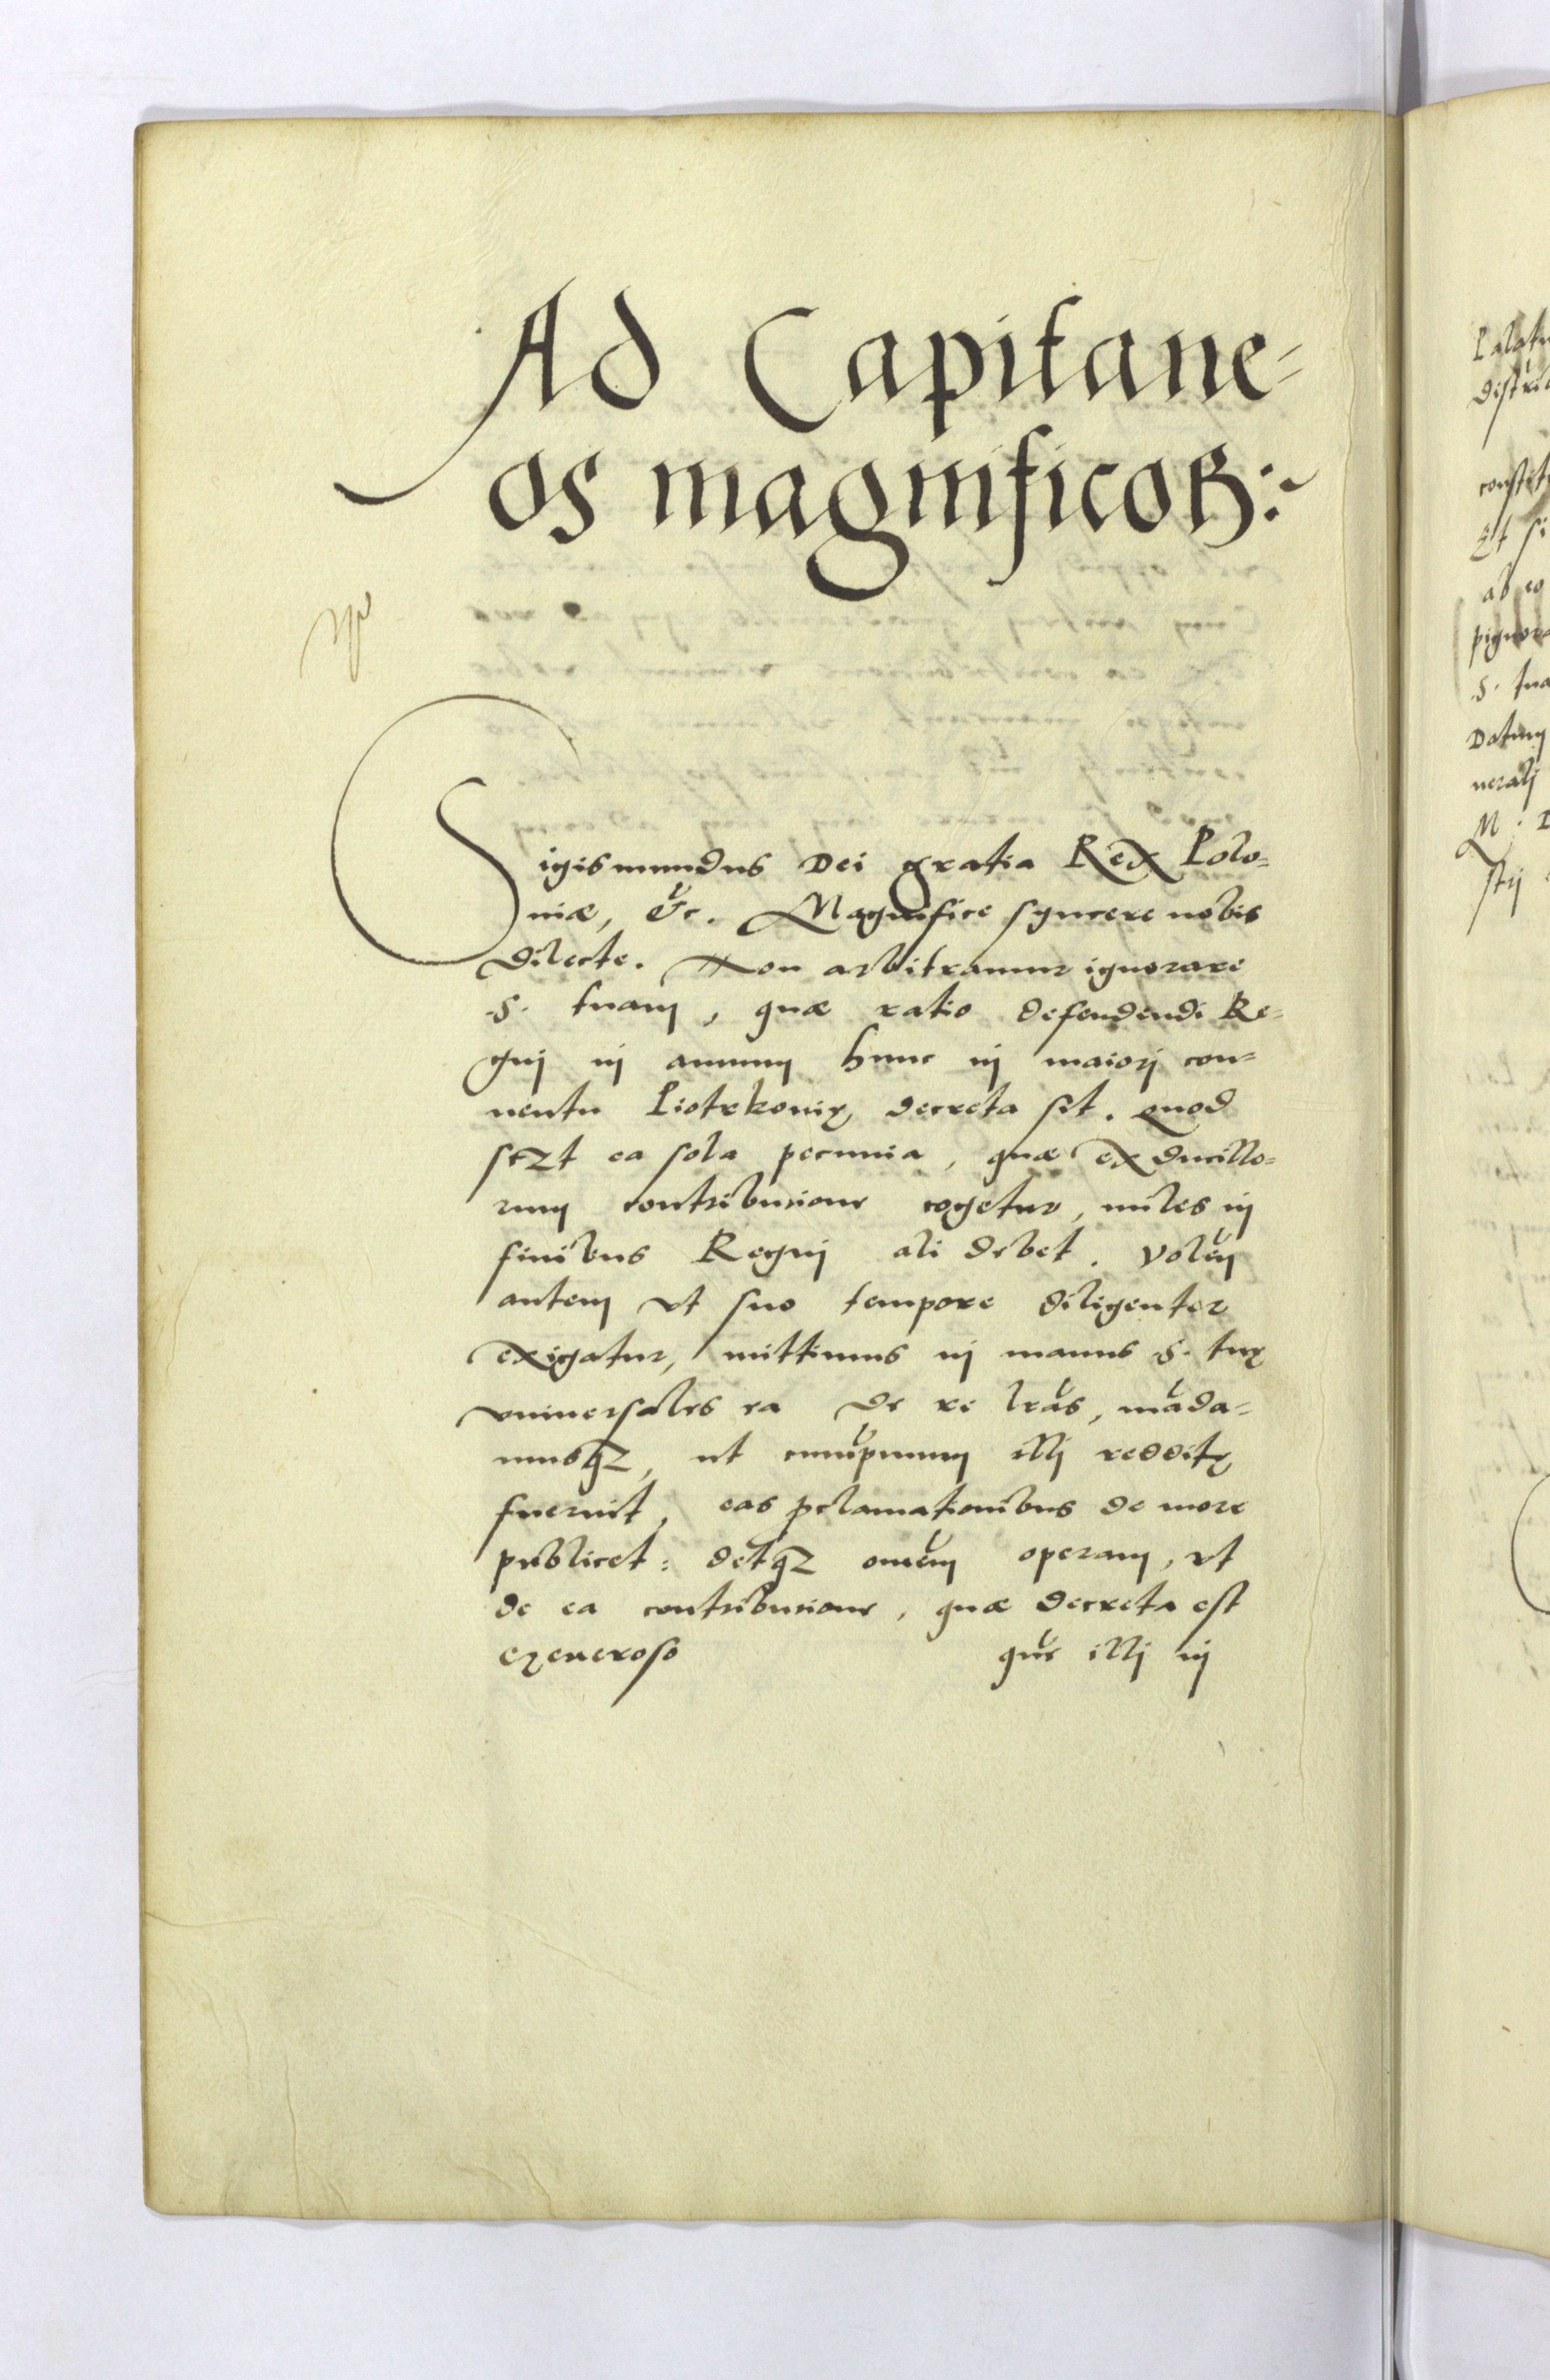 Ad Capitane-
os magnificos:~
Sigismundus Dei gratia Rex Polo-
niæ, &c. Magnifice syncere nobis
dilecte. Non arbitramur ignorare
S. tuam, quæ ratio defendendi Re-
gnj in annum hunc in maiorj con-
uentu Piotrkouię decreta sit. Quod
scz̃t ea sola pecunia, quæ ex ducillo-
rum contribucione cogetur, miles in
finibus Regnj ali debet. Volẽn
autem vt suo tempore diligenter
exigatur, mittimus in manus S. tuę
vniuersales ea de re lrãs, mãda-
musqz, ut cumprimum illj redditę
fuerint, eas pclamationibus de more
publicet: detqz omẽm operam, vt
de ea contribucione, quæ decreta est
generoso que illj in
Palat
distri
constit
Et si
ab eo
pignor
S. tua
Datum
neralj
M. D
strj